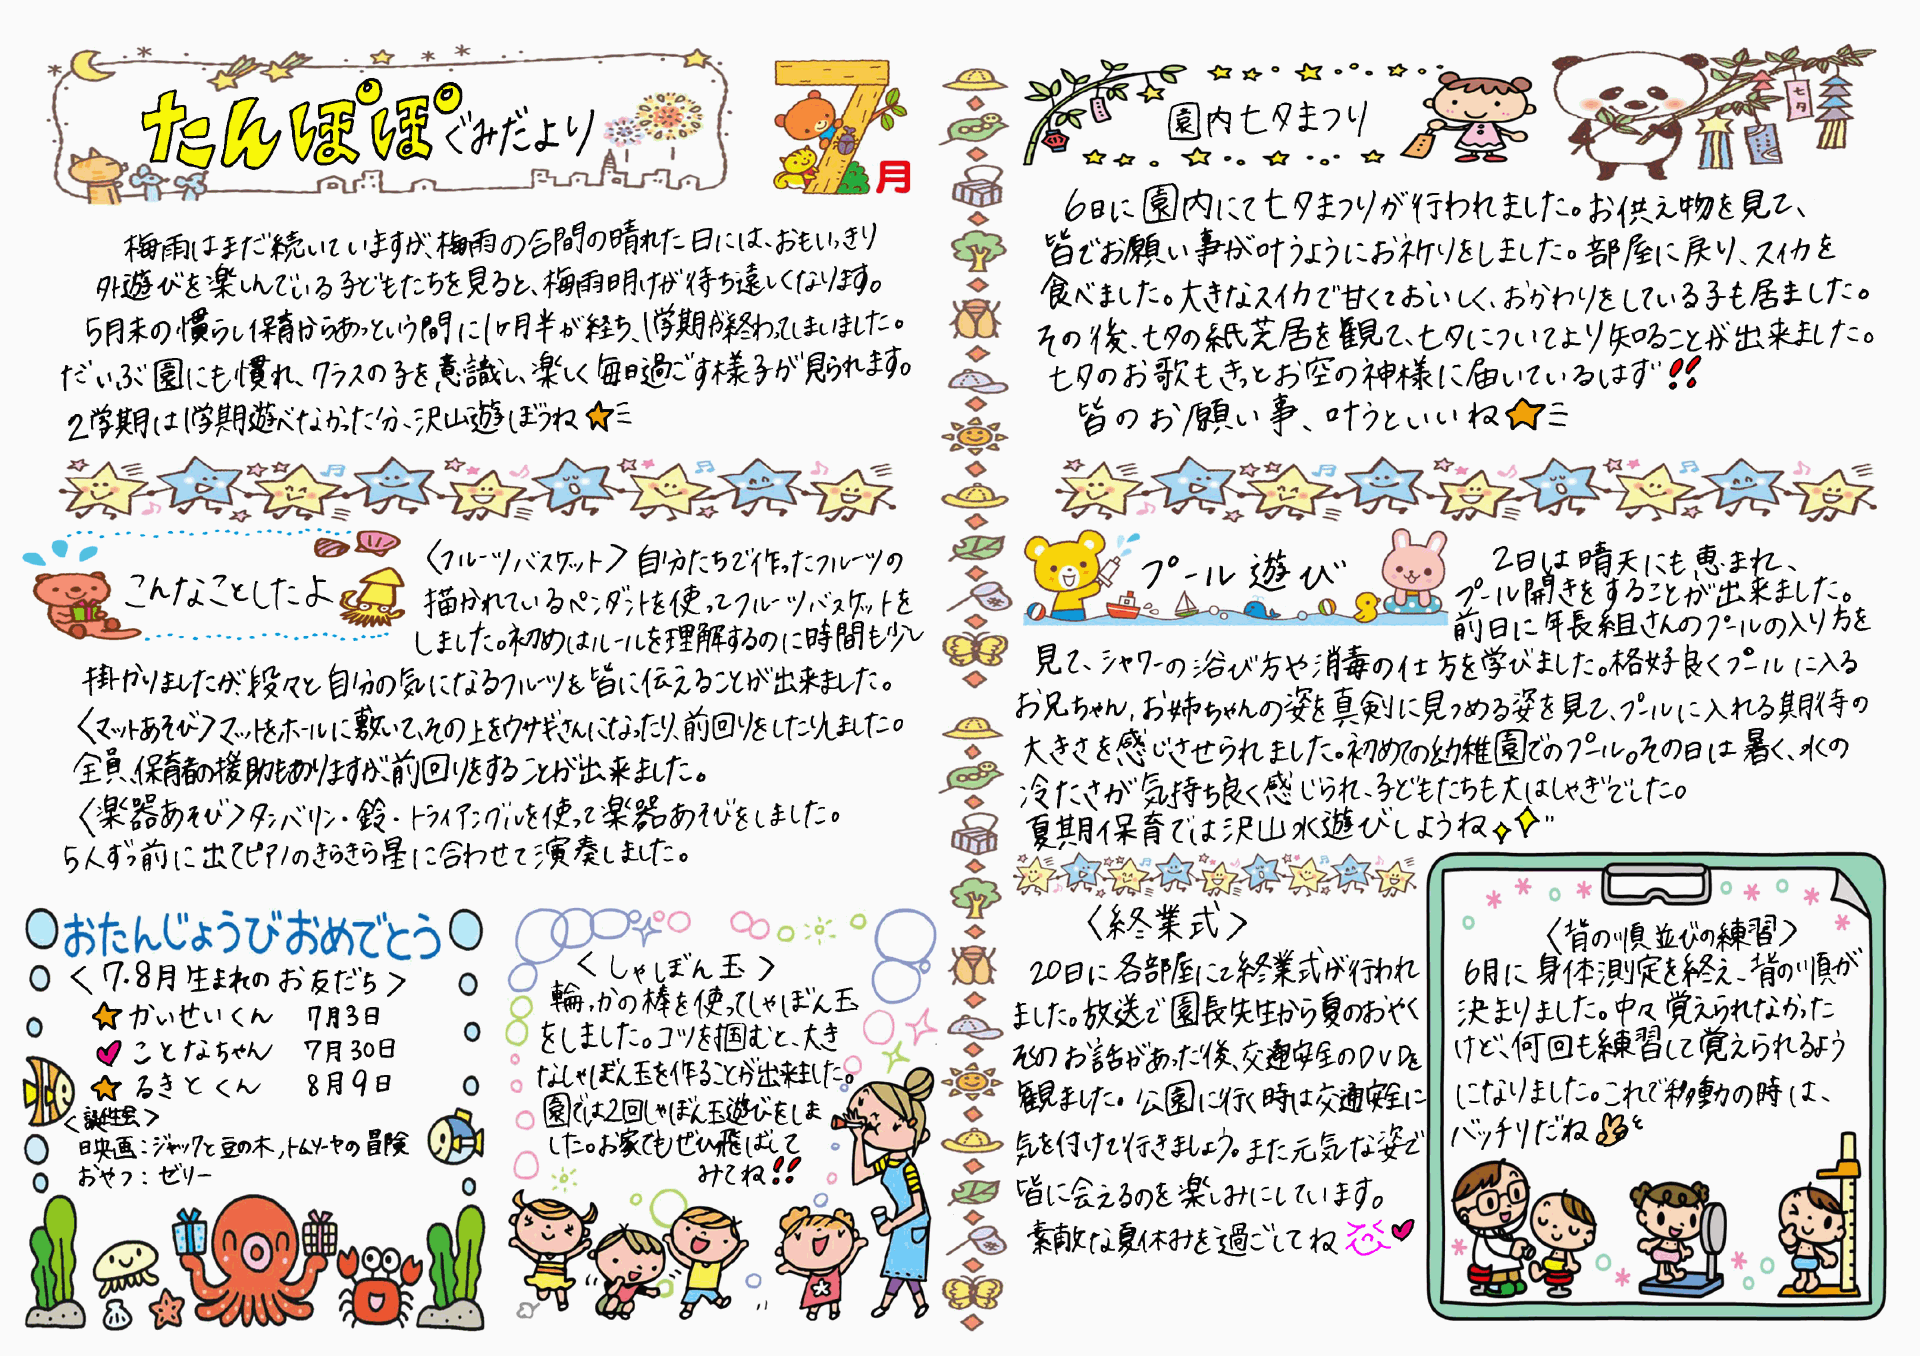 たんぽぽぐみだより
7月
梅雨はまだ続いていますが、梅雨の合間の晴れた日には、おもいっきり
外遊びを楽しんでいる子どもたちを見ると、梅雨明けが待ち遠しくなります。
5月末の慣らし保育からあっという間に1ヶ月半が経ち、1学期が終わってしまいました。
だいぶ園にも慣れ、クラスの子を意識し、楽しく毎日過ごす様子が見られます。
2学期は1学期遊べなかった分、沢山遊ぼうね
こんなことしたよ
〈フルーツバスケット〉自分たちで作ったフルーツの
描かれているペンダントを使ってフルーツバスケットを
しました。初めはルールを理解するのに時間も少し
掛かりましたが、段々と自分の気になるフルーツを皆に伝えることが出来ました。
〈マットあそび〉マットをホールに敷いて、その上をウサギさんになったり、前回りをしたりしました。
全員、保育者の援助もありますが、前回りをすることが出来ました。
〈楽器あそび〉タンバリン・鈴・トライアングルを使って楽器あそびをしました。
5人ずつ前に出てピアノのきらきら星に合わせて演奏しました。
おたんじょうびおめでとう
〈7.8月生まれのお友だち〉
かいせいくん 7月3日
ことなちゃん 7月30日
るきとくん 8月9日
〈誕生会〉
映画：ジャックと豆の木、トムソーヤの冒険
おやつ：ゼリー
〈しゃぼん玉〉
輪っかの棒を使ってしゃぼん玉
をしました。コツを掴むと、大き
なしゃぼん玉を作ることが出来ました。
園では2回しゃぼん玉遊びをしま
した。お家でもぜひ飛ばして
みてね!!
園内七夕まつり
七夕
6日に園内にて七夕まつりが行われました。お供え物を見て、
皆でお願い事が叶うようにお祈りをしました。部屋に戻り、スイカを
食べました。大きなスイカで甘くておいしく、おかわりをしている子も居ました。
その後、七夕の紙芝居を観て、七夕についてより知ることが出来ました。
七夕のお歌もきっとお空の神様に届いているはず!!
皆のお願い事、叶うといいね
プール遊び
2日は晴天にも恵まれ、
プール開きをすることが出来ました。
前日に年長組さんのプールの入り方を
見て、シャワーの浴び方や消毒の仕方を学びました。格好良くプールに入る
お兄ちゃん、お姉ちゃんの姿を真剣に見つめる姿を見て、プールに入れる期待の
大きさを感じさせられました。初めての幼稚園でのプール。その日は暑く、水の
冷たさが気持ち良く感じられ、子どもたちも大はしゃぎでした。
夏期保育では沢山水遊びしようね
〈終業式〉
20日に各部屋にて終業式が行われ
ました。放送で園長先生から夏のおやく
そのお話があった後、交通安全のDVDを
観ました。公園に行く時は交通安全に
気を付けて行きましょう。また元気な姿で
皆に会えるのを楽しみにしています。
素敵な夏休みを過ごしてね
〈背の順並びの練習〉
6月に身体測定を終え、背の順が
決まりました。中々覚えられなかった
けど、何回も練習して覚えられるよう
になりました。これで移動の時は、
バッチリだね